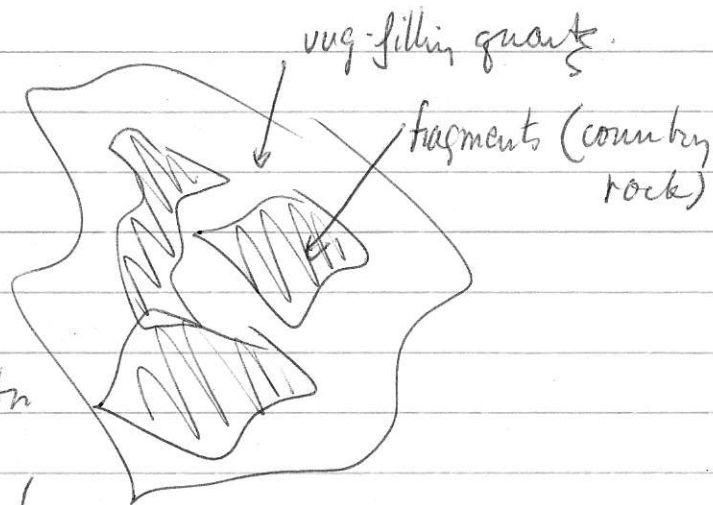 vug-filling quartz.
fragments (country
rock)